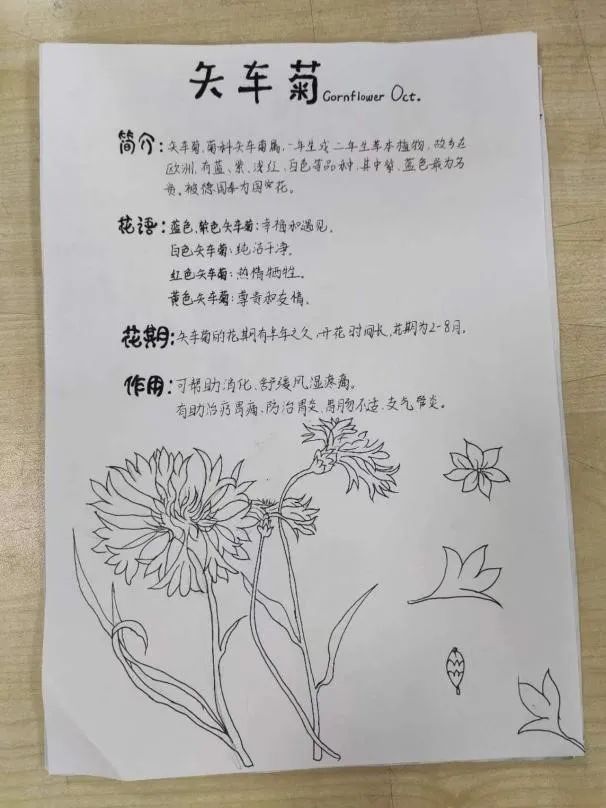 矢车菊 Cornflower Oct.
简介:矢车菊,菊科矢车菊属,一年生或二年生草本植物,故乡在
欧洲,有蓝、紫、浅红、白色等品种,其中紫、蓝色最为名
贵。被德国奉为国家花。
花语:蓝色,紫色矢车菊:幸福和遇见。
白色矢车菊:纯洁干净。
红色矢车菊:热情牺牲。
黄色矢车菊:尊贵和友情。
花期:矢车菊的花期有半年之久,开花时间长,花期为2-8月。
作用:可帮助消化、舒缓风湿疼痛。
有助治疗胃痛、防治胃炎、胃肠不适、支气管炎。